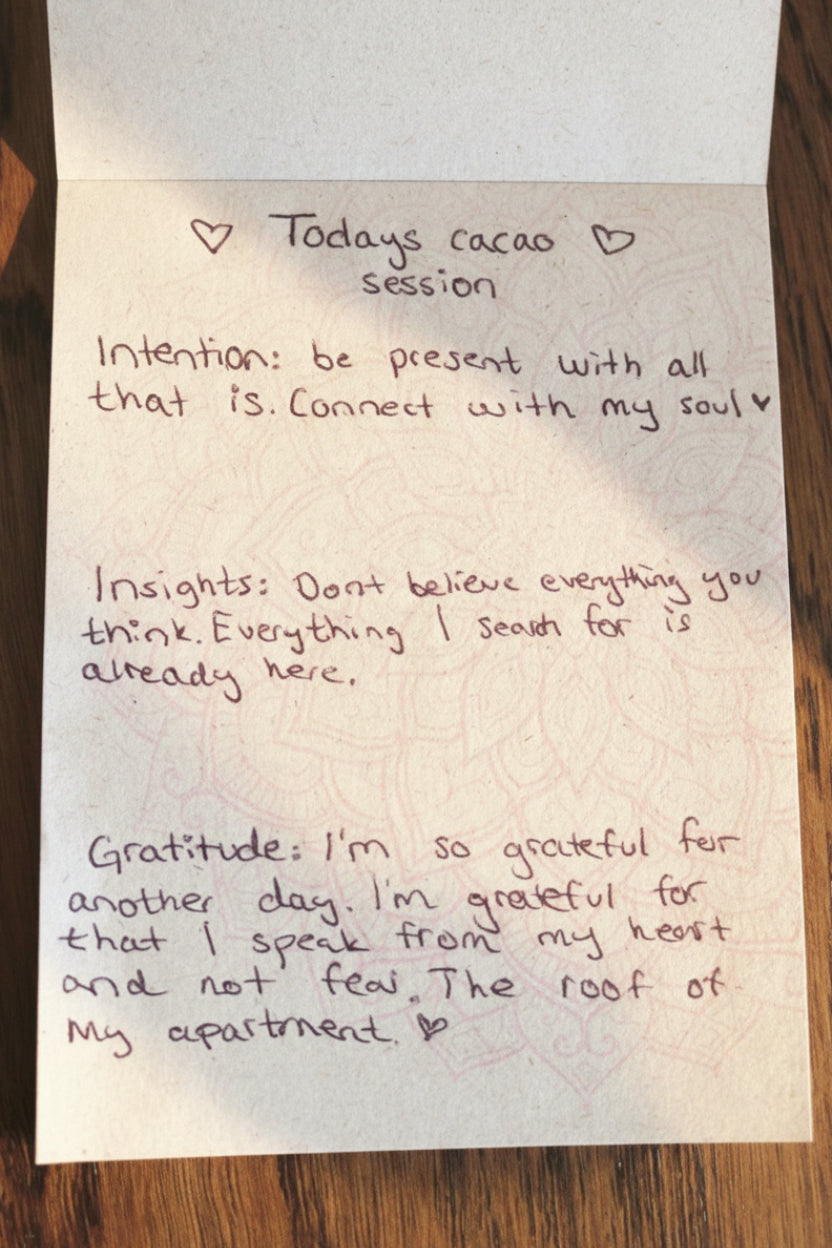 ♡ Todays cacao ♡
session
Intention: be present with all
that is. Connect with my soul ♥
Insights: Dont believe everything you
think. Everything I search for is
already here.
Gratitude: I'm so grateful for
another day. I'm grateful for
that I speak from my heart
and not fear. The roof of
my apartment. ♥